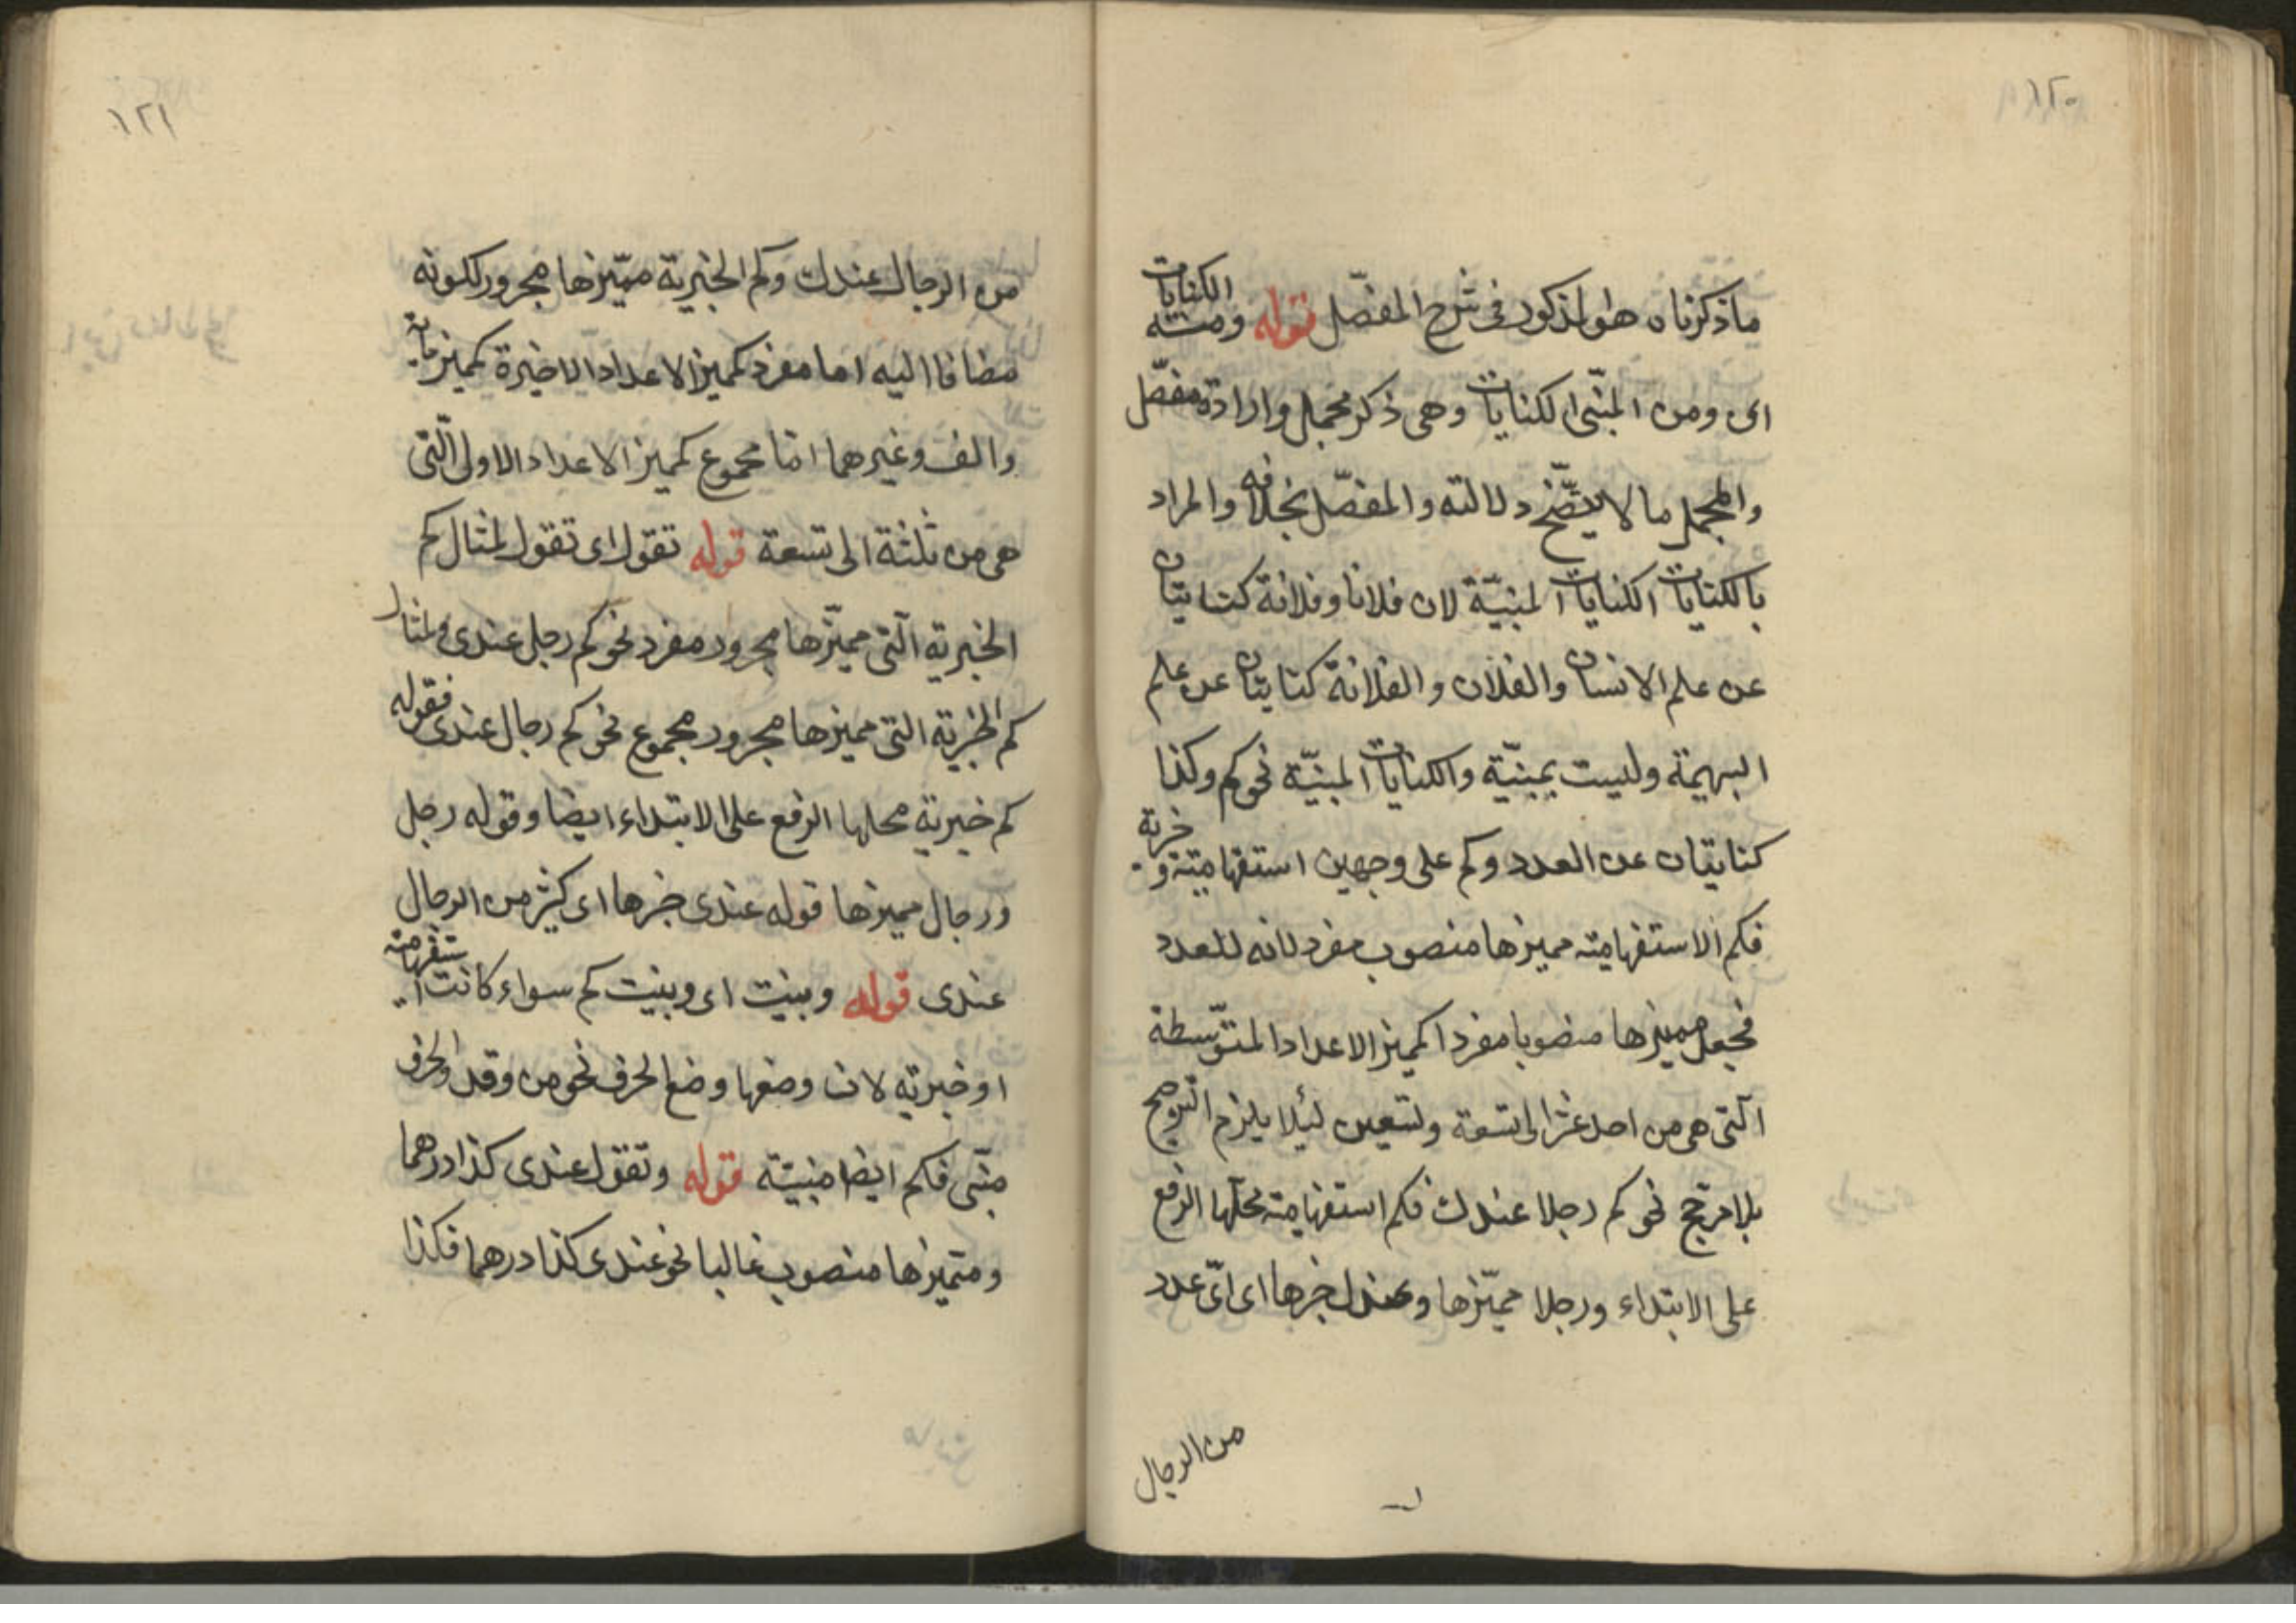 ١٢٠
ما ذكرناه هو المذكور فى شرح المفصّل قوله ومنه الكنايات
اى ومن المبنّى الكنايات وهى ذكر مجمل وارادة مفصّل
والمجمل ما لا يتضّح دلالته والمفصّل بخلافه والمراد
بالكنايات الكنايات المبنيّة لان فلانا وفلانة كنايتان
عن علم الانسان والفلان والفلانة كنايتان عن علم
البهيمة وليست بمبنيّة والكنايات المبنيّة نحو كم وكذا
كنايتان عن العدد وكم على وجهين استفهاميّة وخبرية
فكم الاستفهاميّة مميزها منصوب مفرد لانه للعدد
فجعل مميزها منصوبا مفردا كمميز الاعداد المتوّسطة
الّتى هى من احد عشر الى تسعة وتسعين لئلا يلزم الترجيح
بلا مرجّح نحو كم رجلا عندك فكم استفهاميّة محلّها الرفع
على الابتداء ورجلا مميّزها وعندك خبرها اى اىّ عدد
من الرجال
١٢١
من الرجال عندك وكم الخبرية مميّزها مجرور لكونه
مضافا اليه اما مفرد كمميز الاعداد الاخيرة كمميز مأية
والف وغيرهما امّا مجموع كمميز الاعداد الاولى الّتى
هى من ثلثة الى تسعة قوله تقول اى تقول لمثال كم
الخبرية الّتى مميّزها مجرور مفرد نحو كم رجل عندى ولمثال
كم الخبرية التى مميزها مجرور مجموع نحو كم رجال عندى فقوله
كم خبرية محلها الرفع على الابتداء ايضا وقوله رجل
ورجال مميزها قوله عندى خبرها اى كثير من الرجال
عندى قوله وبنيت اى وبنيت كم سواء كانت استفهاميّة
او خبريّه لان وضعها وضع الحرف نحو من وقد والحرف
مبنّى فكم ايضا مبنيّة قوله وتقول عندى كذا درهما
ومتميزها منصوب غالبا نحو عندى كذا درهما فكذا